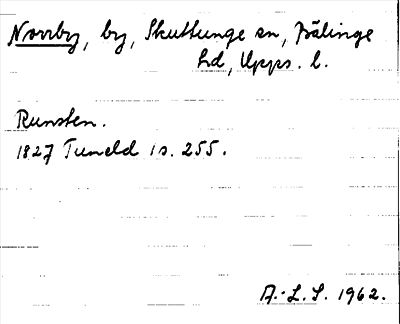 Norrby, by, Skuttunge sn, Bälinge
hd, Upps. l.
Runsten.
1827 Tuneld 1 s. 255.
A.-L.S. 1962.